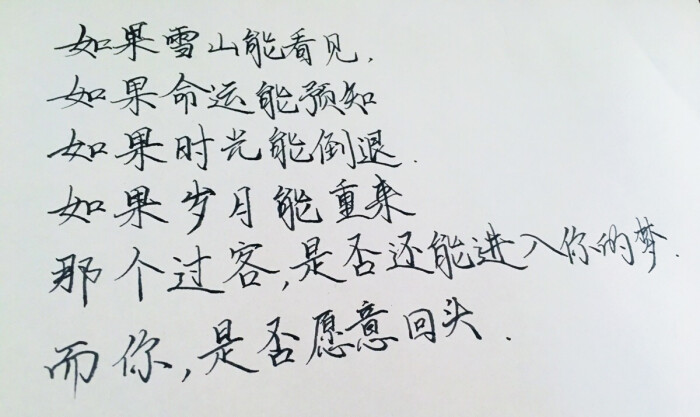 如果雪山能看见,
如果命运能预知
如果时光能倒退.
如果岁月能重来
那个过客,是否还能进入你的梦.
而你,是否愿意回头.